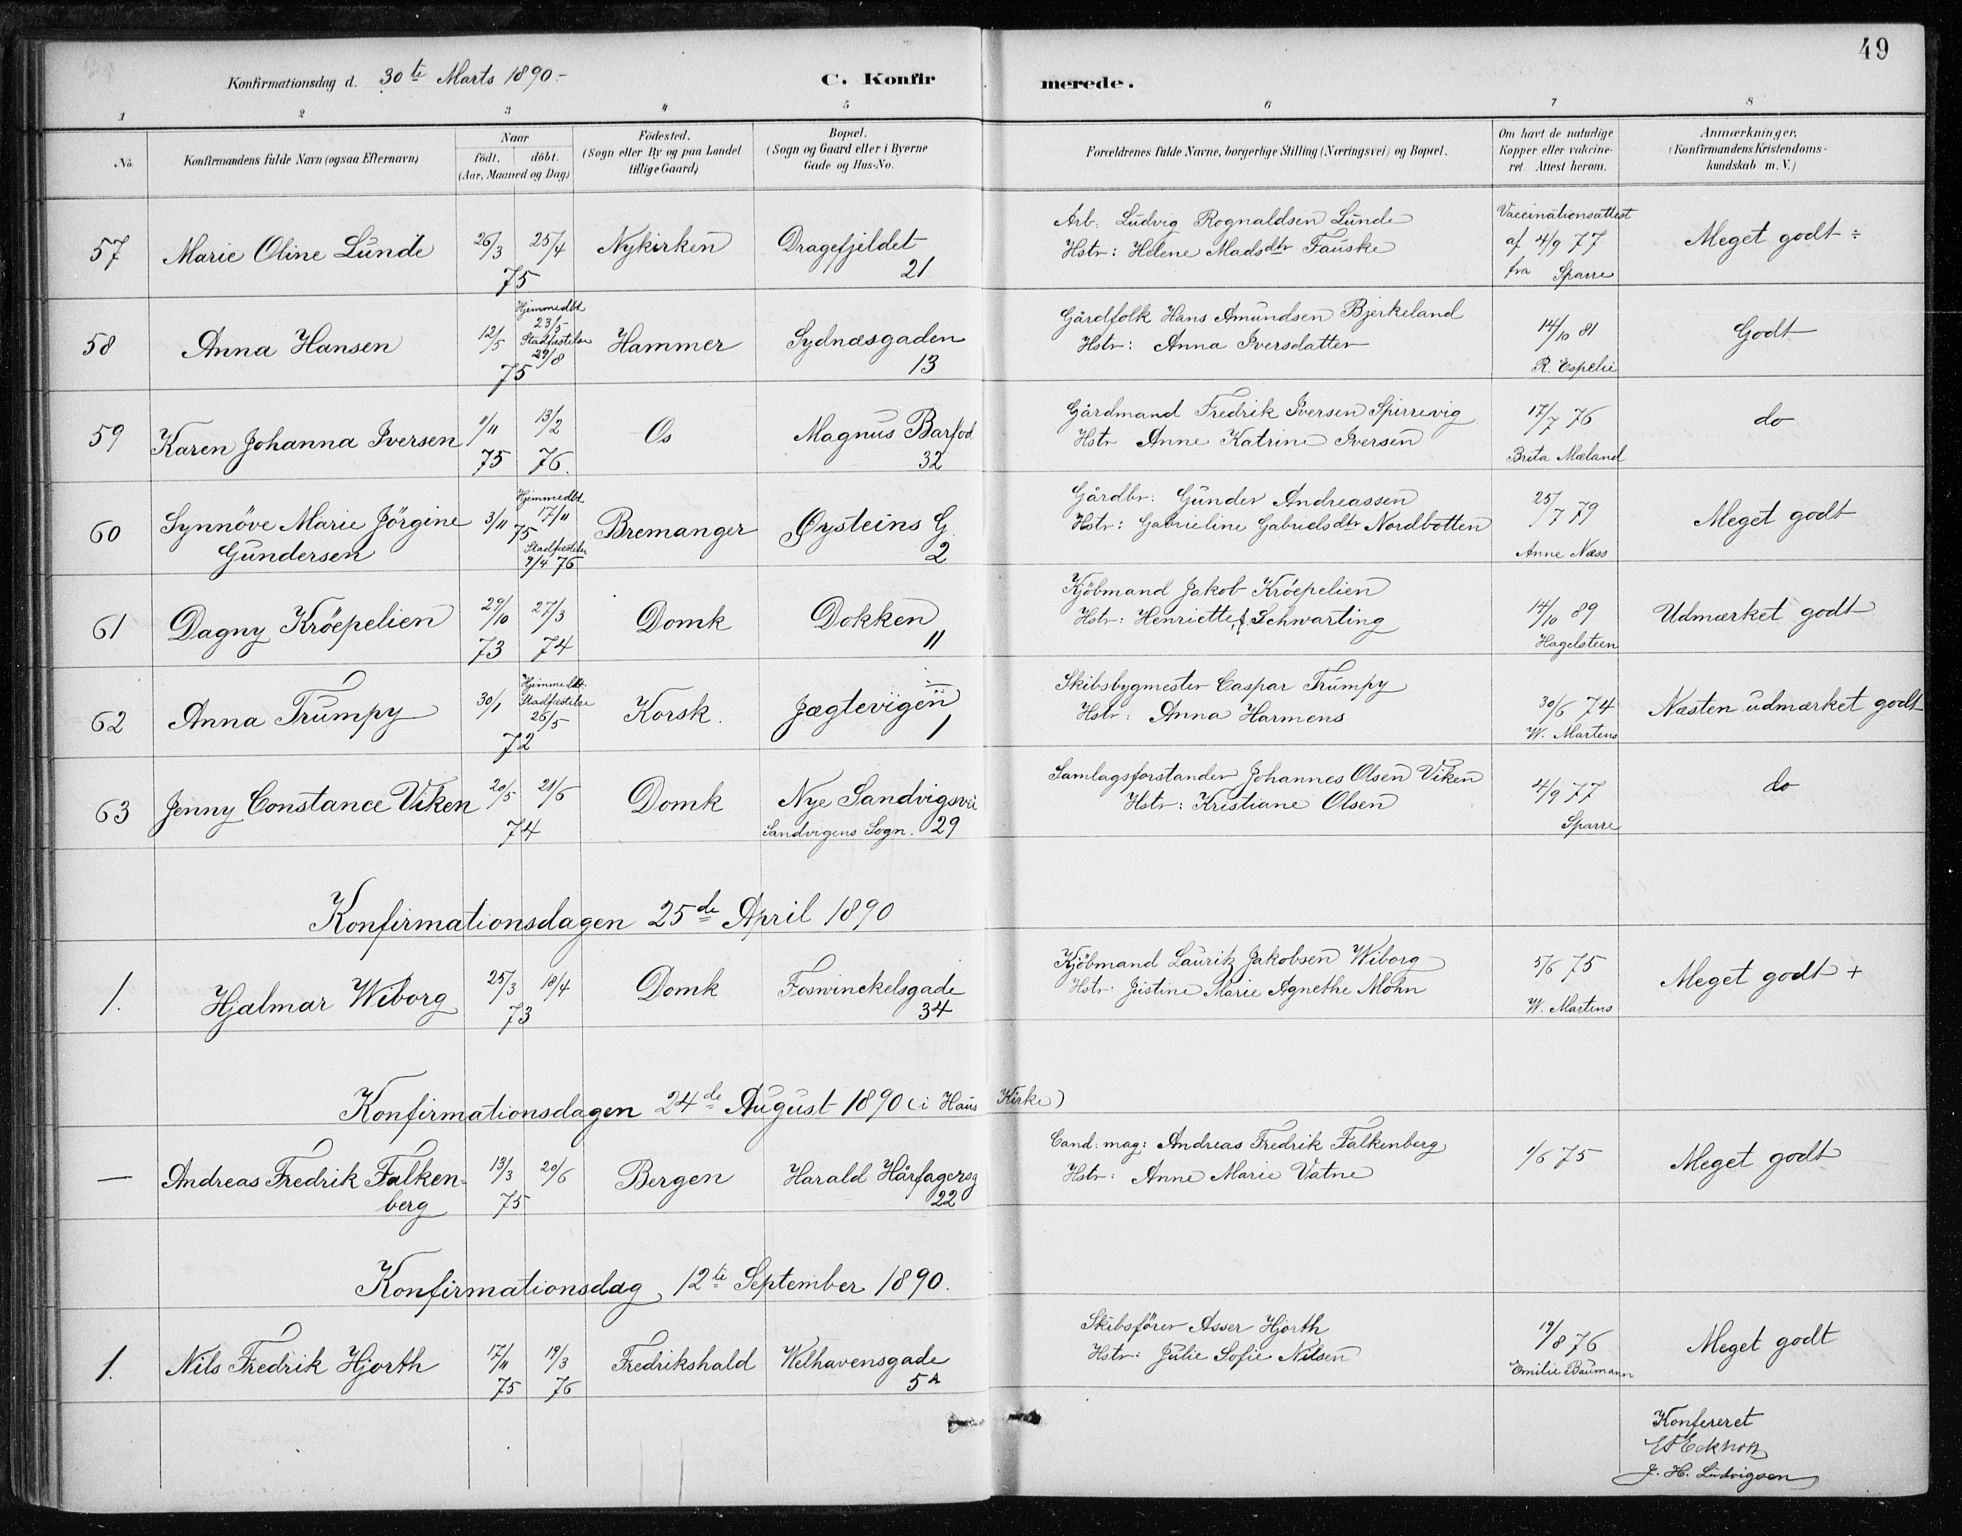 49
Konfirmationsdag d. 30te Marts 1890.-
C. Konfirmerede.
1 2 3 4 5 6 7 8
No.
Konfirmandens fulde Navn (ogsaa Efternavn)
Naar
födt. döbt.
(Aar, Maaned og Dag)
Födested.
(Sogn eller By og paa Landet
tillige Gaard)
Bopæl.
(Sogn og Gaard eller i Byerne
Gade og Hus-No.
Forældrenes fulde Navne, borgerlige Stilling (Næringsvei) og Bopæl.
Om havt de naturlige
Kopper eller vakcine-
ret. Attest herom.
Anmærkninger.
(Konfirmandens Kristendoms-
kundskab m. V.)
57 Marie Oline Lunde 26/3 25/4 75 Nykirken Dragefjeldet 21
Arb: Ludvig Rognaldsen Lunde
Hstr: Helene Madsdtr Fauske
Vaccinationsattest
af 4/9 77
fra Sparre
Meget godt ÷
58 Anna Hansen 12/5 Hjemmedbt 23/5 Stadfæstelse 29/8 75 Hammer Sydnæsgaden 13
Gårdfolk Hans Amundsen Bjerkeland
Hstr: Anna Iversdatter
14/10 81
R. Espelie
Godt
59 Karen Johanna Iversen 11/11 75 13/2 76. Os Magnus Barfod 32
Gårdmand Fredrik Iversen Spirrevig
Hstr Anne Katrine Iversen
17/7 76
Brita Mæland
do
60 Synnöve Marie Jörgine
Gundersen
3/11 Hjemmedbt 17/11 75 Stadfæstelse 9/4 76 Bremanger Øysteins G. 2
Gårdbr: Gunder Andreassen
Hstr: Gabrieline Gabrielsdtr Nordbotten
25/7 79
Anne Næss
Meget godt
61 Dagny Kröepelien 29/10 73 27/3 74 Domk Dokken 11
Kjöbmand Jakob Kröepelien
Hstr: Henriette f. Schwarting
14/10 89
Hagelsteen
Udmærket godt
62 Anna Trumpy 30/1 Hjemmedbt. Stadfæstelse 26/5 72 Korsk. Jægtevigen 1
Skibsbygmester Caspar Trumpy
Hstr: Anna Harmens
30/6 74
W. Martens
Næsten udmærket godt
63 Jenny Constance Viken 20/5 21/6 74 Domk Nye Sandvigsvei
Sandvigens Sogn. 29
Samlagsforstander Johannes Olsen Viken
Hstr: Kristiane Olsen
4/9 77
Sparre
do
Konfirmationsdagen 25de April 1890
1. Hjalmar Wiborg 25/3 18/4 73 Domk Foswinckelsgade 34
Kjöbmand Lauritz Jakobsen Wiborg
Hstr: Justine Marie Agnethe Mohn
5/6 75
W. Martens
Meget godt +
Konfirmationsdagen 24de August 1890 (i Haus Kirke)
— Andreas Fredrik Falken-
berg
13/3 20/6 75 Bergen Harald Hårfagersg 22
Cand: mag: Andreas Fredrik Falkenberg
Hstr: Anne Marie Vatne
1/6 75
Meget godt
Konfirmationsdag 12te September 1890.
1. Nils Fredrik Hjorth 17/11 75 19/3 76 Fredrikshald Welhavensgade 5A
Skibsförer Asser Hjorth
Hstr: Julie Sofie Nilsen
19/8 76
Emilie Baumann
Meget godt
Konfereret
J. H. Ludvigsen